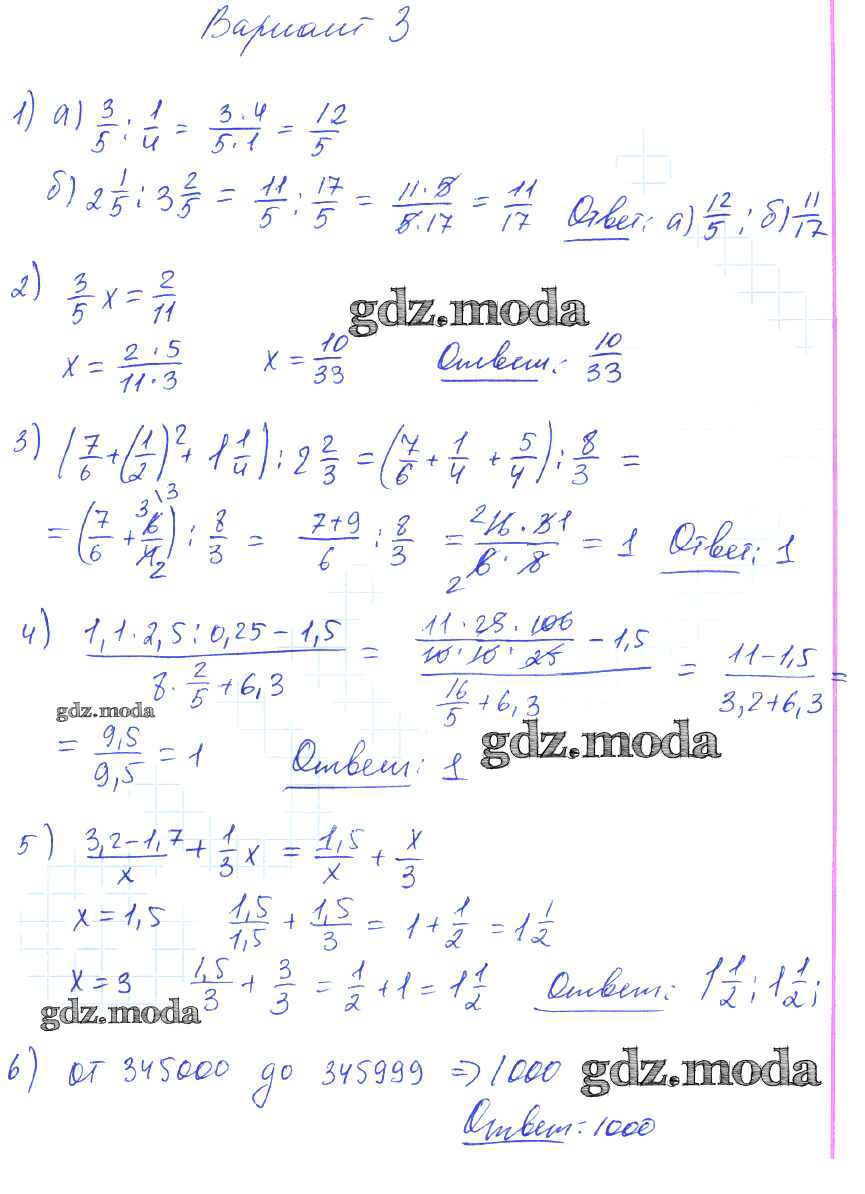 Вариант 3
1) а) 3/5 : 1/4 = 3·4/5·1 = 12/5
б) 2 1/5 : 3 2/5 = 11/5 : 17/5 = 11·5/5·17 = 11/17 Ответ: а) 12/5; б) 11/17
2) 3/5 x = 2/11
gdz.moda
x = 2·5/11·3 x = 10/33 Ответ: 10/33
3) (7/6 + (1/2)² + 1 1/4) : 2 2/3 = (7/6 + 1/4 + 5/4) : 8/3 =
= (7/6 + 3 6\3/4 2) : 8/3 = 7+9/6 : 8/3 = 2 16·3 1/2 6·8 = 1 Ответ: 1
4) 1,1·2,5:0,25-1,5 / 8·2/5+6,3 = 11·25·100/10·10·25 - 1,5 / 16/5+6,3 = 11-1,5/3,2+6,3 =
gdz.moda
= 9,5/9,5 = 1 Ответ: 1
gdz.moda
5) 3,2-1,7/x + 1/3 x = 1,5/x + x/3
x = 1,5 1,5/1,5 + 1,5/3 = 1 + 1/2 = 1 1/2
x = 3 1,5/3 + 3/3 = 1/2 + 1 = 1 1/2 Ответ: 1 1/2; 1 1/2;
gdz.moda
6) от 345000 до 345999 => 1000
gdz.moda
Ответ: 1000